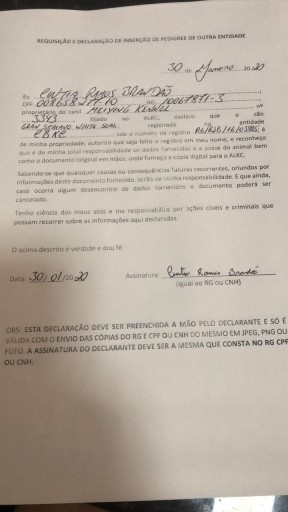 REQUISIÇÃO E DECLARAÇÃO DE INSERÇÃO DE PEDIGREE DE OUTRA ENTIDADE
30 de Janeiro de 2020
Eu CINTIA RAMOS BRANDÃO
CPF RG
proprietário do canil MEIYING KENNEL nº
3343 filiado ao ALKC, declaro que o cão
GRAN SERRANO WHITE SEAL registrado na entidade
CBKC sob o número de registro é
de minha propriedade, autorizo que seja feito o registro em meu nome, e reconheço
que é de minha total responsabilidade os dados fornecidos e a posse do animal bem
como o documento original em mãos, onde forneço a cópia digital para o ALKC.
Sabendo-se que quaisquer causas ou consequências futuras recorrentes, oriundos por
informações deste documento fornecido, serão de minha responsabilidade. E que ainda,
caso ocorra algum desencontro de dados fornecidos o documento poderá ser
cancelado.
Tenho ciência dos meus atos e me responsabilizo por ações civeis e criminais que
possam recorrer sobre as informações aqui declaradas.
O acima descrito é verdade e dou fé
Data: 30/01/2020 Assinatura: Cintia Ramos Brandão
(igual ao RG ou CNH)
OBS: ESTA DECLARAÇÃO DEVE SER PREENCHIDA A MÃO PELO DECLARANTE E SÓ É
VÁLIDA COM O ENVIO DAS CÓPIAS DO RG E CPF OU CNH DO MESMO EM JPEG, PNG OU
FOTO. A ASSINATURA DO DECLARANTE DEVE SER A MESMA QUE CONSTA NO RG CPF
OU CNH.